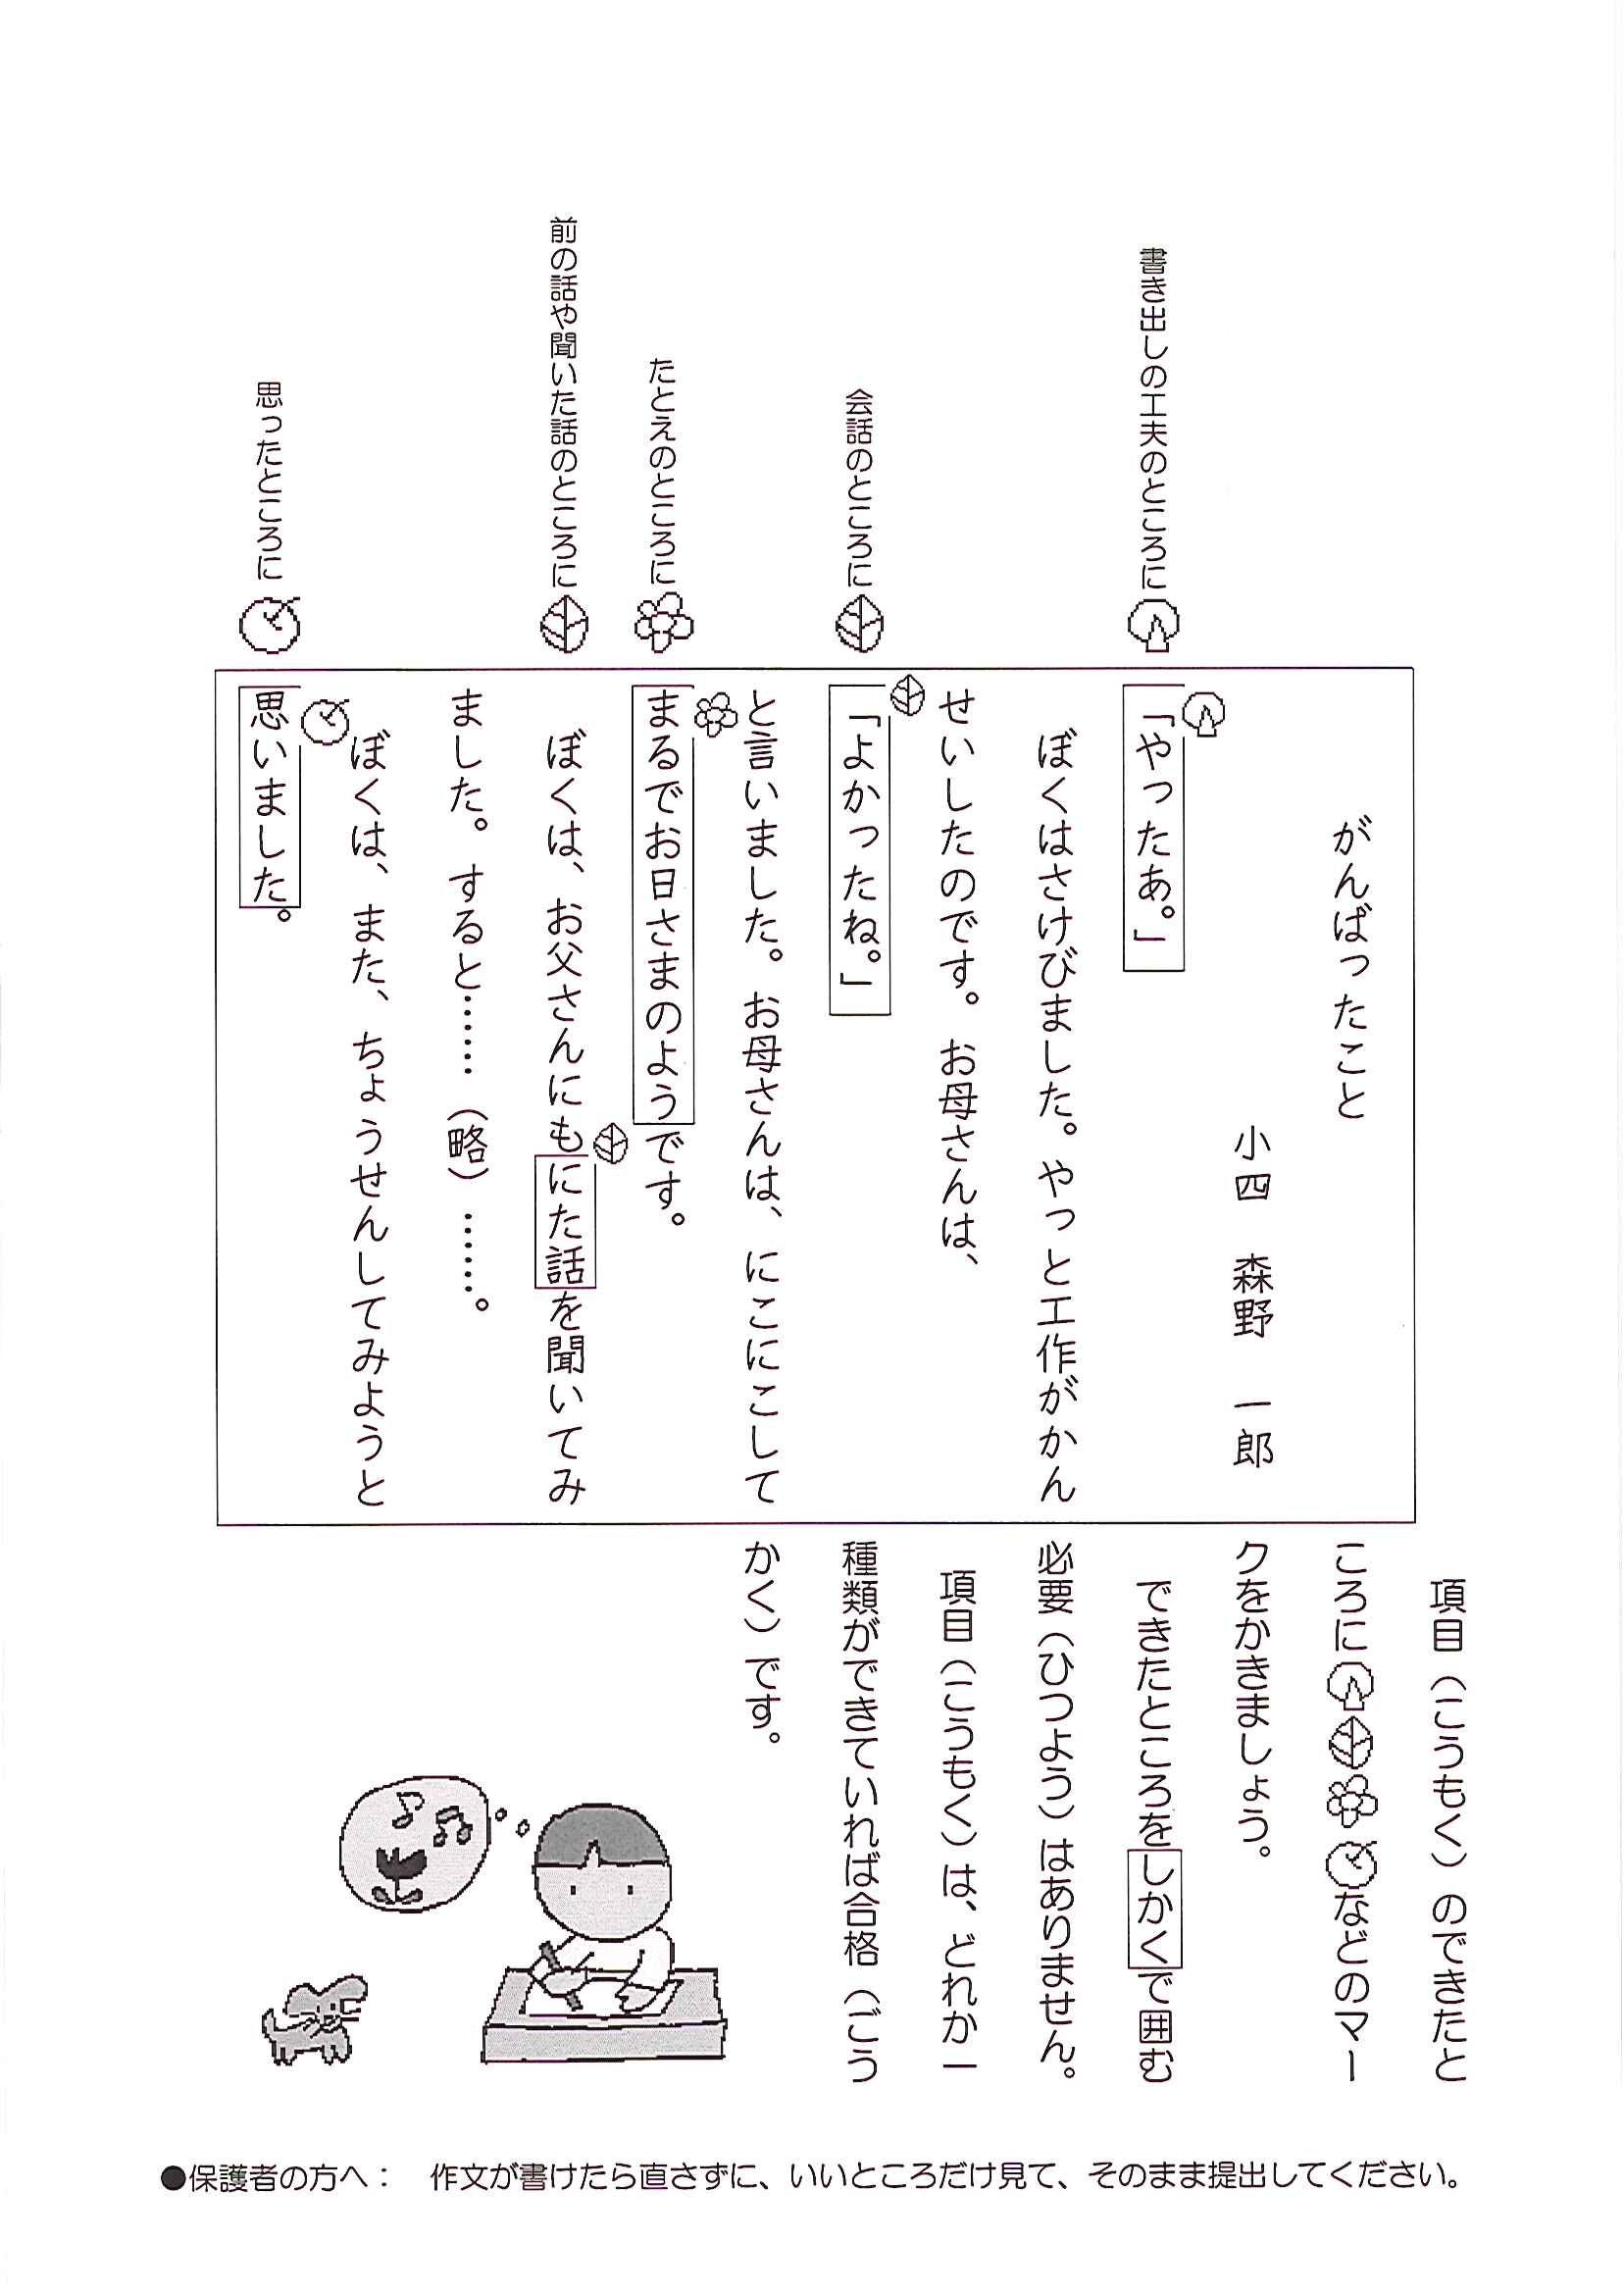 書き出しの工夫のところに
会話のところに
たとえのところに
前の話や聞いた話のところに
思ったところに
がんばったこと
小四 森野 一郎
「やったあ。」
ぼくはさけびました。やっと工作がかん
せいしたのです。お母さんは、
「よかったね。」
と言いました。お母さんは、にこにこして
まるでお日さまのようです。
ぼくは、お父さんにもにた話を聞いてみ
ました。すると……(略)……。
ぼくは、また、ちょうせんしてみようと
思いました。
項目(こうもく)のできたと
ころになどのマー
クをかきましょう。
できたところをしかくで囲む
必要(ひつよう)はありません。
項目(こうもく)は、どれか一
種類ができていれば合格(ごう
かく)です。
●保護者の方へ: 作文が書けたら直さずに、いいところだけ見て、そのまま提出してください。